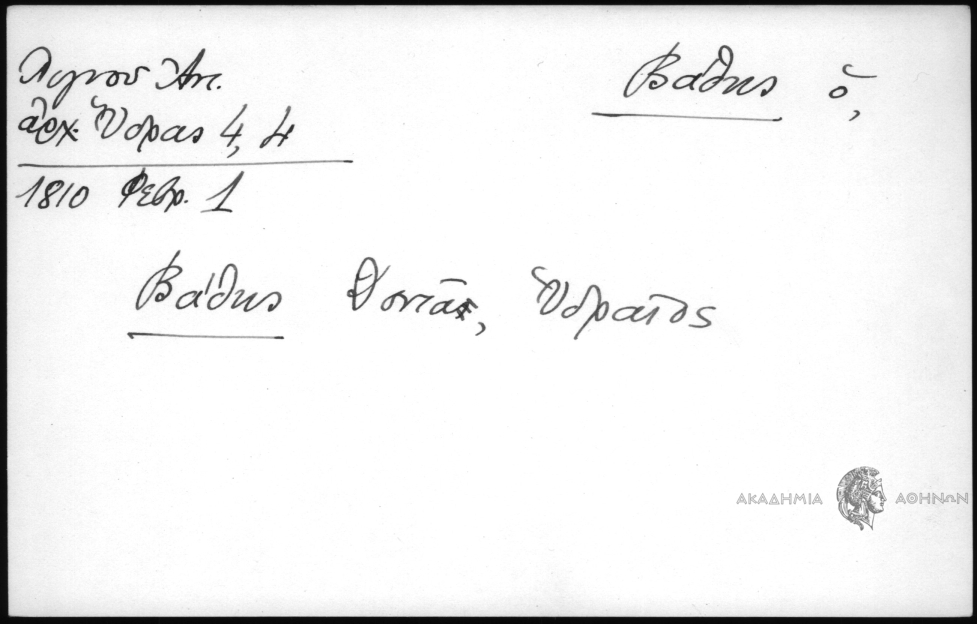 Λιγνοῦ Ἀντ.
ἀρχ. Ὕδρας 4, 4
1810 Φεβρ. 1
Βάθης ὁ,
Βάθης Ὑδραῖος
ΑΚΑΔΗΜΙΑ ΑΘΗΝΩΝ